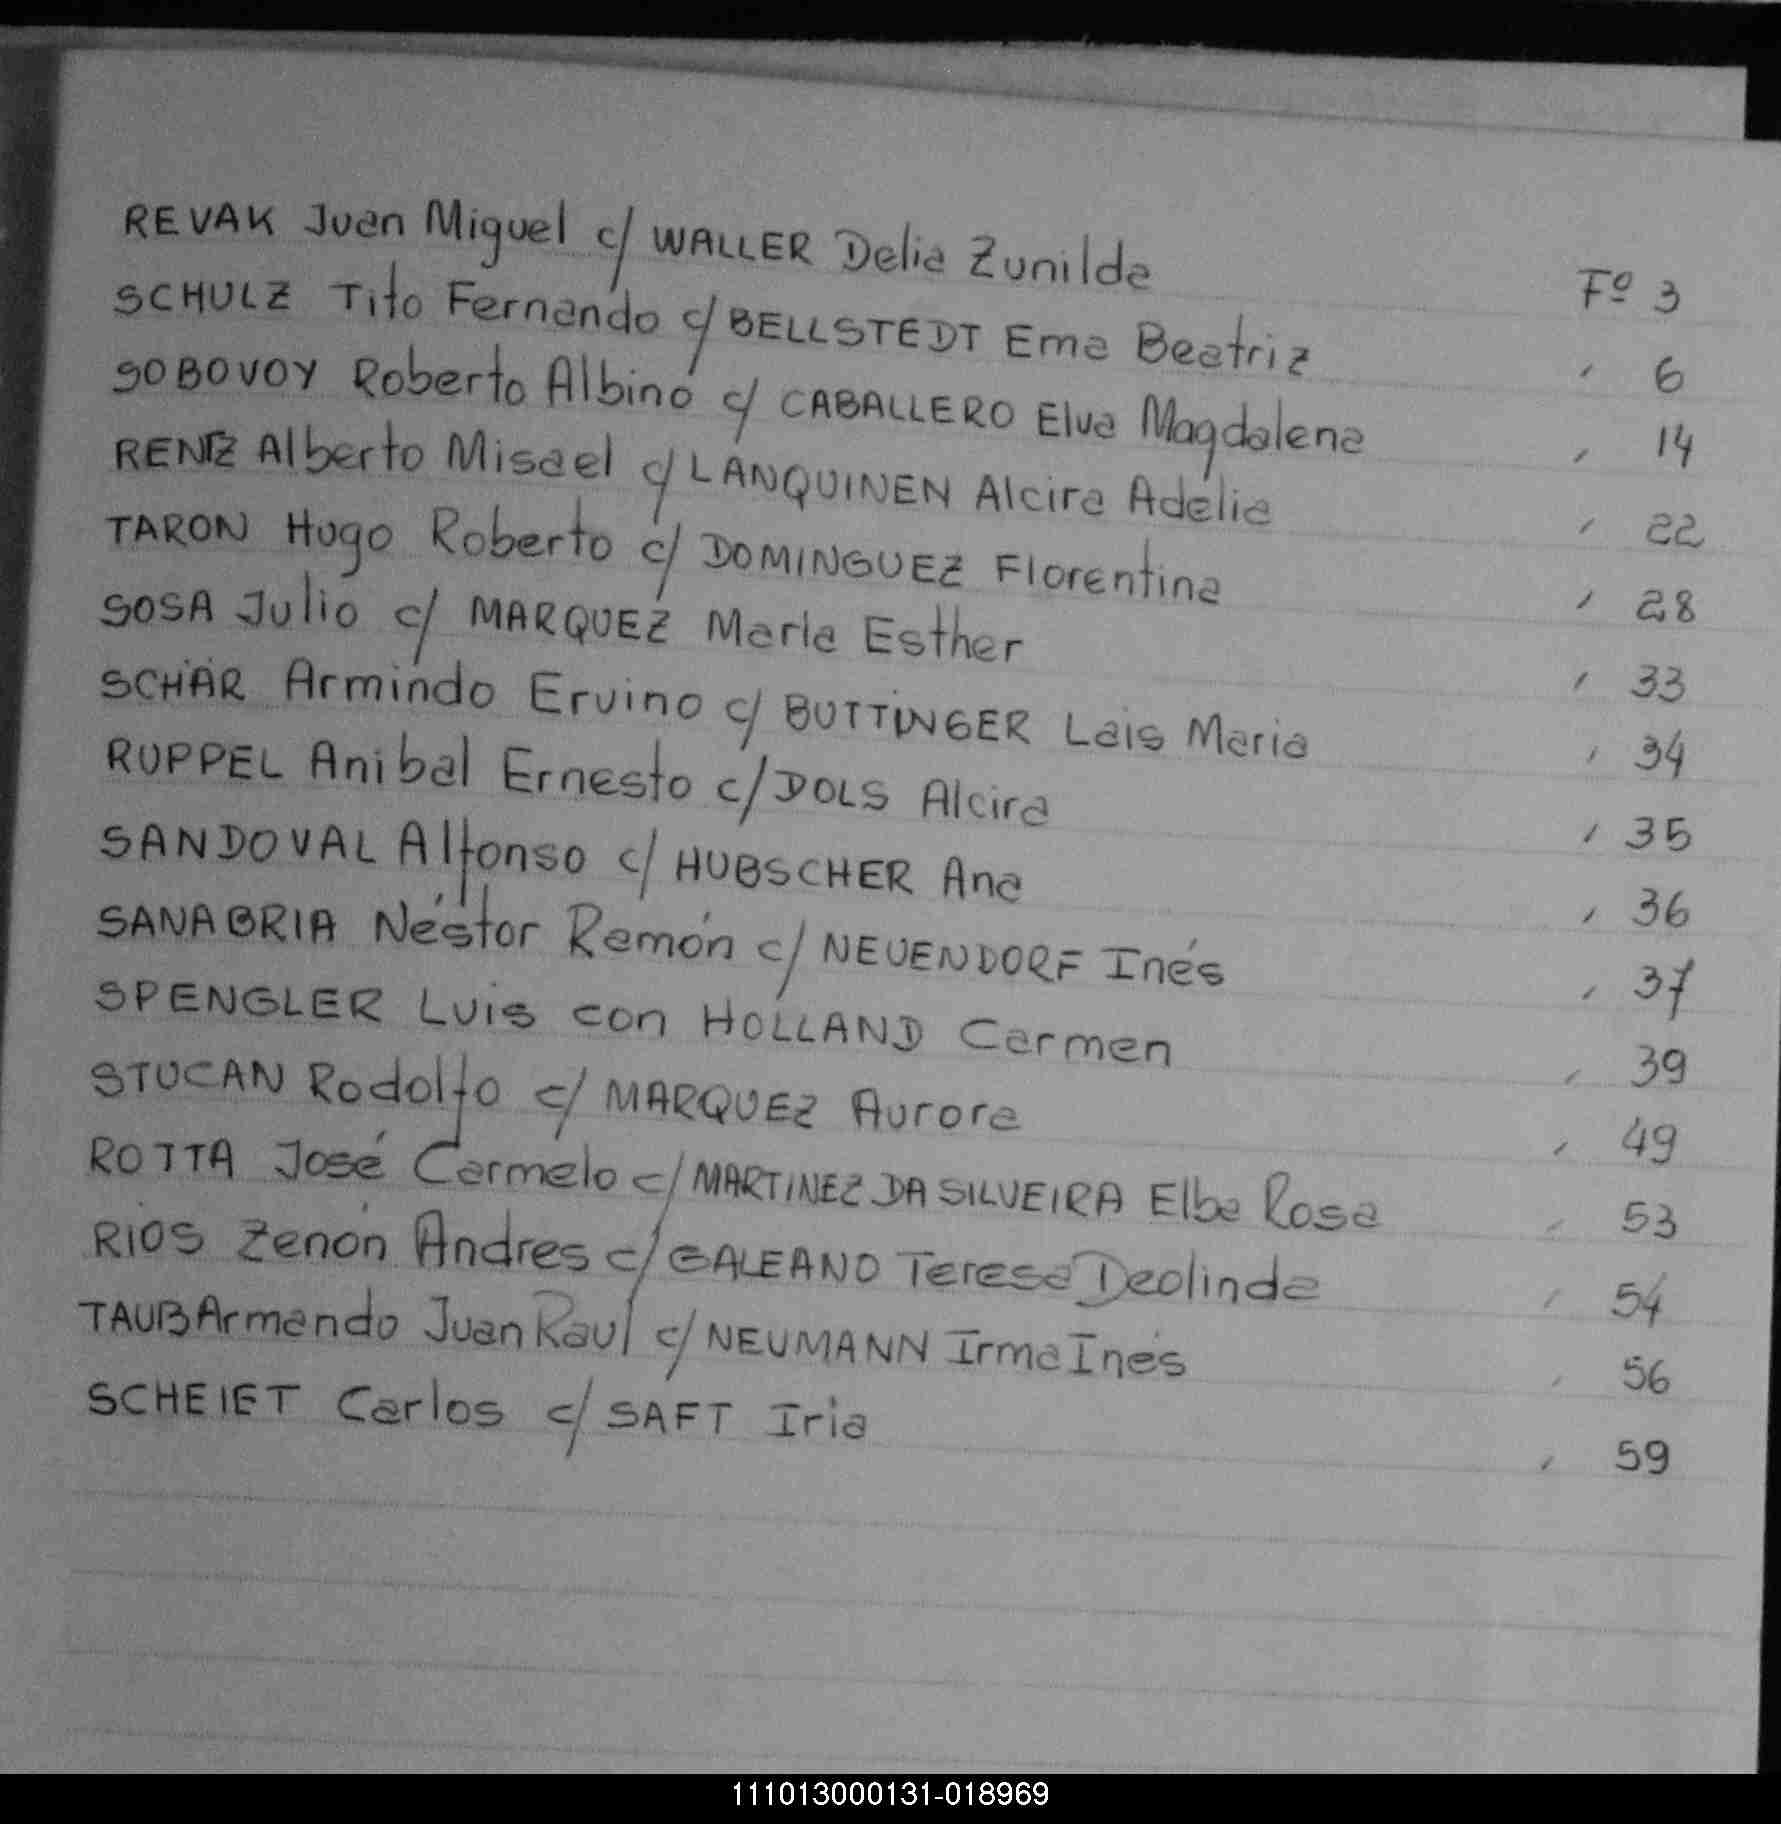 REVAK Juan Miguel c/ WALLER Delia Zunilda Fº 3
SCHULZ Tito Fernando c/ BELLSTEDT Ema Beatriz " 6
SOBOVOY Roberto Albino c/ CABALLERO Elva Magdalena " 14
RENTZ Alberto Misael c/ LANQUINEN Alcira Adelia " 22
TARON Hugo Roberto c/ DOMINGUEZ Florentina " 28
SOSA Julio c/ MARQUEZ María Esther " 33
SCHÄR Armindo Ervino c/ BUTTINGER Lais Maria " 34
RUPPEL Anibal Ernesto c/ DOLS Alcira " 35
SANDOVAL Alfonso c/ HUBSCHER Ana " 36
SANABRIA Néstor Ramón c/ NEUENDORF Inés " 37
SPENGLER Luis con HOLLAND Carmen " 39
STUCAN Rodolfo c/ MARQUEZ Aurora " 49
ROTTA José Carmelo c/ MARTINEZ DA SILVEIRA Elba Rosa " 53
RIOS Zenón Andres c/ GALEANO Teresa Deolinda " 54
TAUB Armando Juan Raul c/ NEUMANN Irma Inés " 56
SCHEIET Carlos c/ SAFT Iria " 59
111013000131-018969